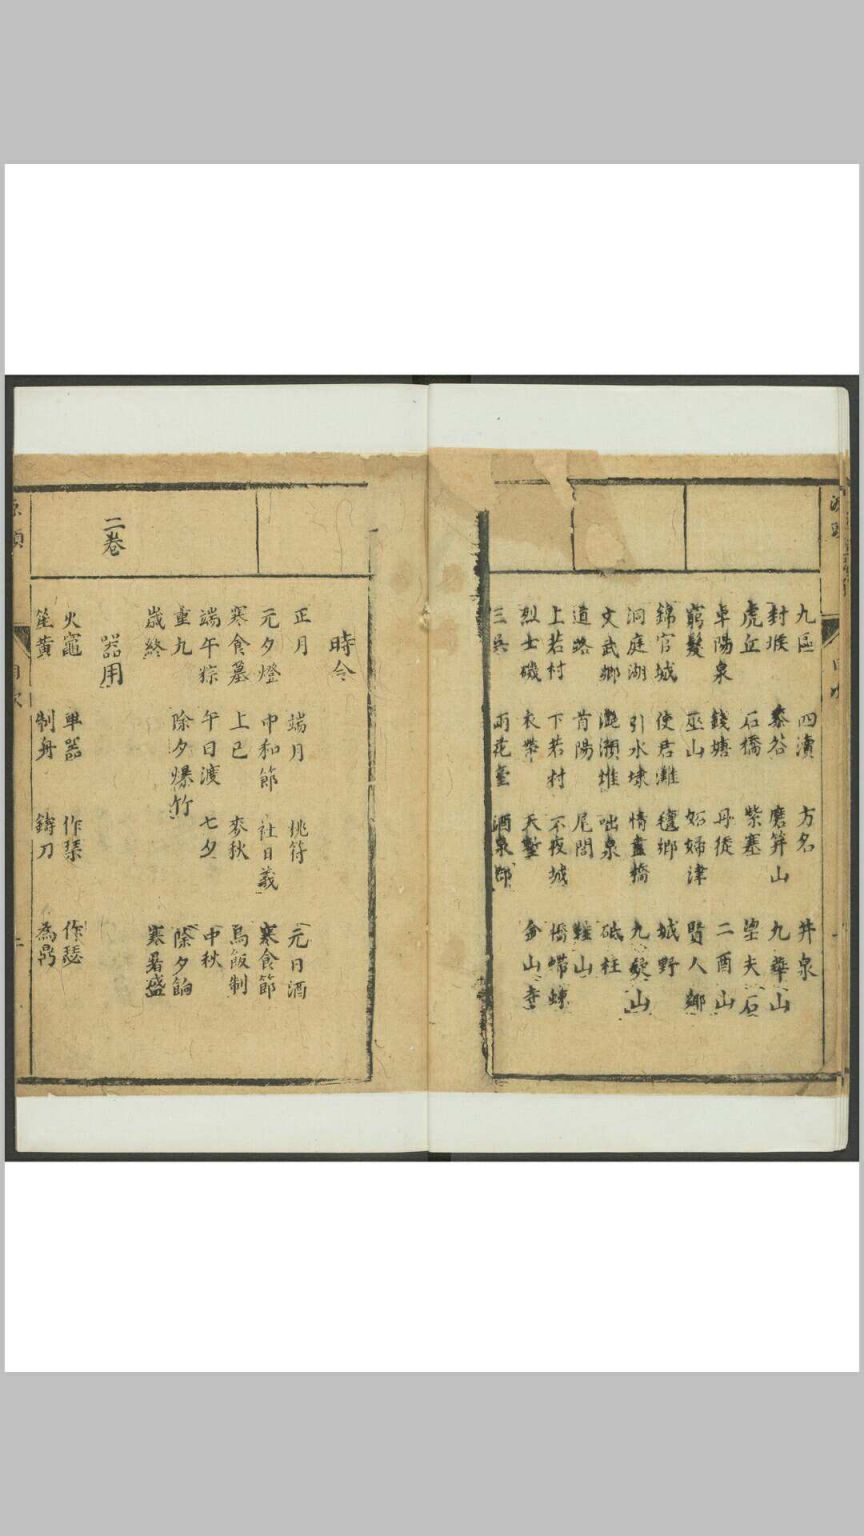 九區 四瀆 方名 井泉
封堠 黍谷 磨笄山 九華山
虎丘 石橋 紫塞 望夫石
卓陽泉 錢塘 丹徒 二酉山
窮髮 巫山 妬婦津 賢人鄉
錦官城 使君灘 穰鄉 城野
洞庭湖 引水埭 情盡橋 九嶷山
文武鄉 灔澦堆 咄泉 砥柱
道路 首陽 尾閭 山
上若村 下若村 不夜城
烈士磯 衣帶 天塹 金山寺
三吳 雨花臺 酒泉郡
時令
正月 端月 桃符 元日酒
元夕燈 中和節 社日義 寒食節
寒食墓 上巳 麥秋 烏飯制
端午粽 午日渡 七夕 中秋
重九 除夕爆竹 除夕餉
歲終 寒暑盛
二卷
器用
火竈 畢器 作琹 作瑟
笙黄 制舟 鑄刀 為鼎
目次